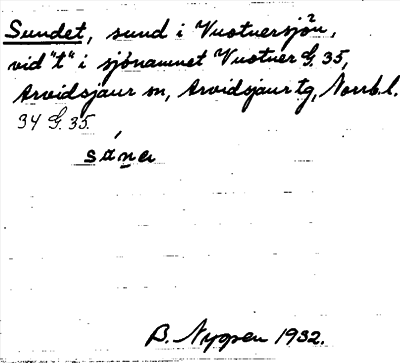 Sundet, sund i Vuotnersjön,
vid "t" i sjönamnet Vuotner G. 35,
Arvidsjaur sn, Arvidsjaur tg, Norrb. l.
34 G. 35.
sá̱ṉa
B. Nygren 1932.